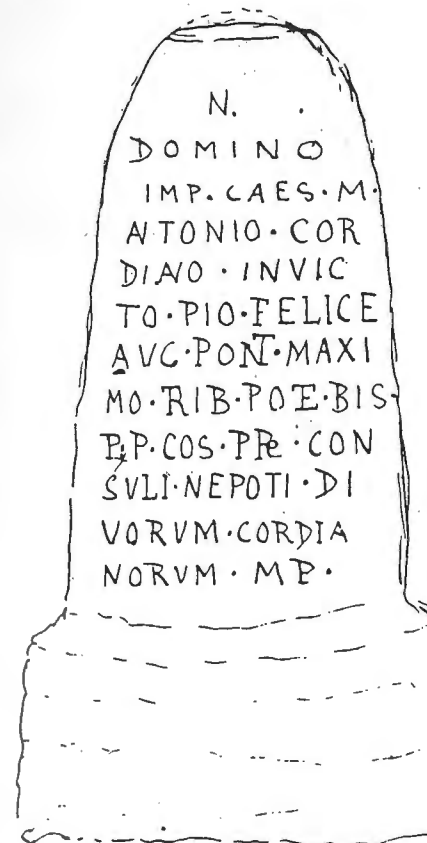 N.
DOMINO
IMP. CAES. M.
ANTONIO. COR
DIANO. INVIC
TO. PIO. FELICE
AVC. PONT. MAXI
MO. TRIB. POTE. BIS.
P. P. COS. PR CON
SVLI. NEPOTI. DI
VORVM. CORDIA
NORVM. MP.